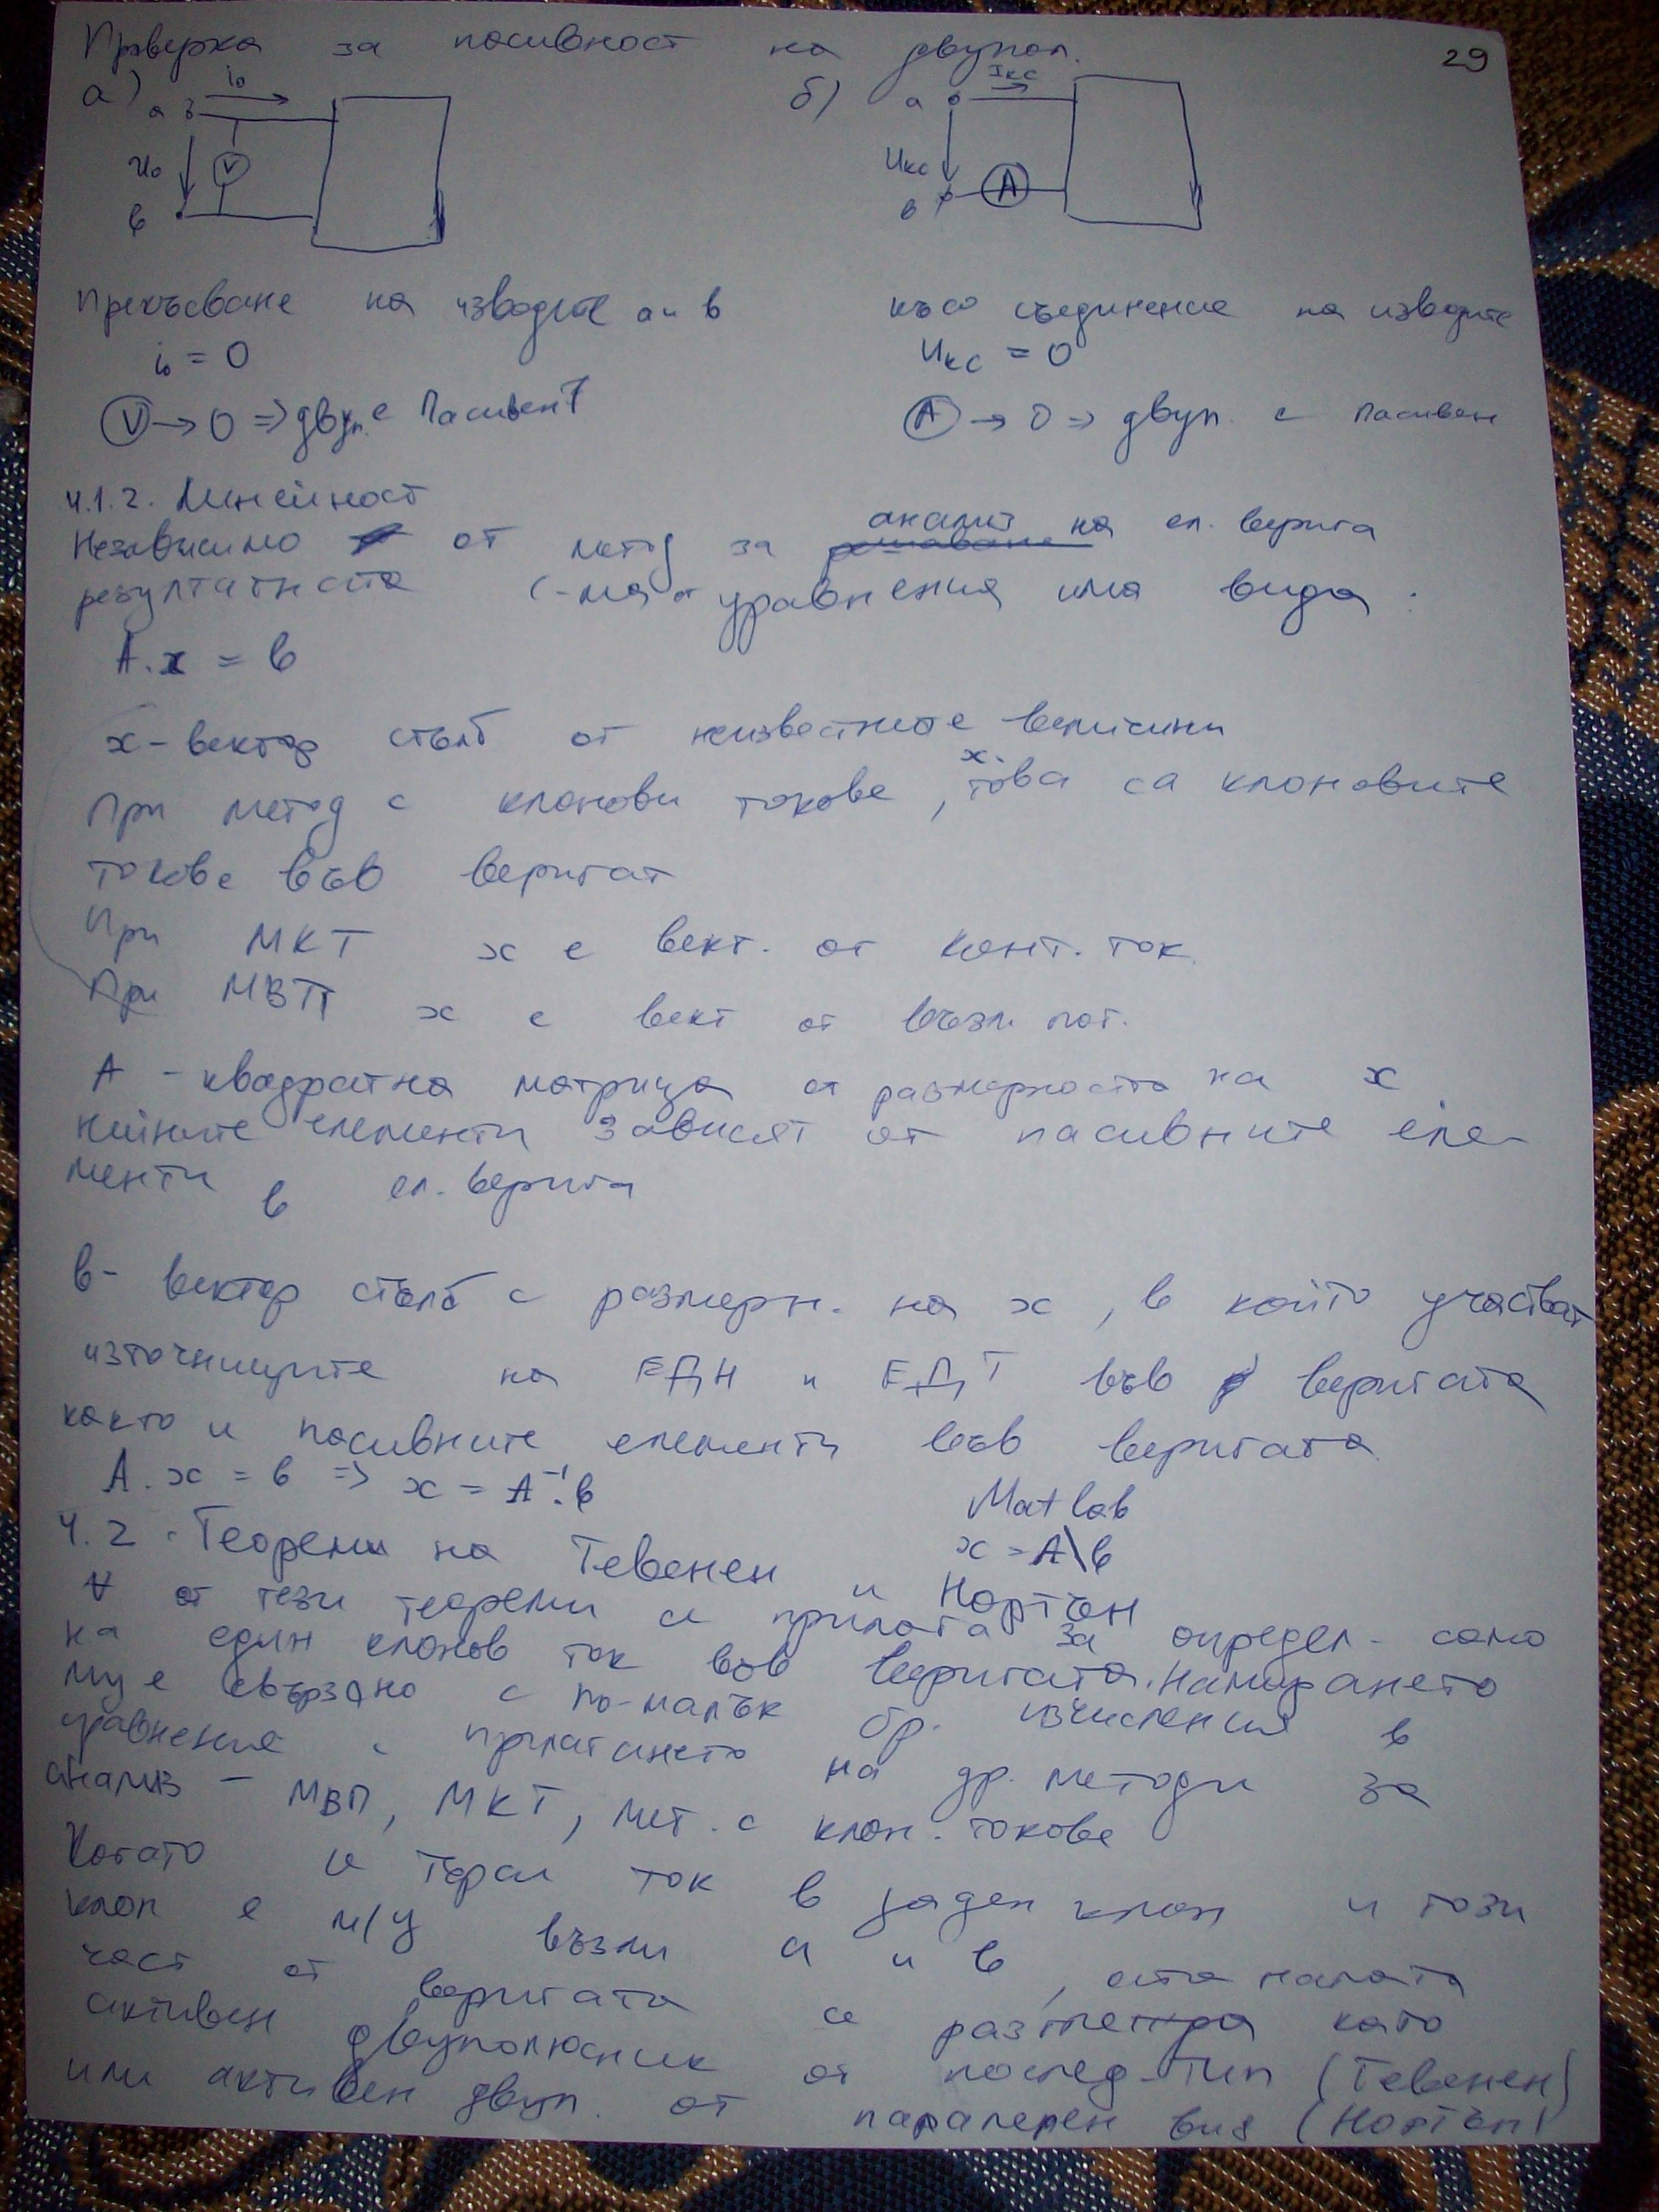 Проверка за пасивност на двупол.
29
а) i₀
а
U₀ V
в
б) Iкс
а
Uкс A
в
Прекъсване на изводите а и в
i₀ = 0
V → 0 => двуп. е Пасивен
късо съединение на изводите
Uкс = 0
A → 0 => двуп. е пасивен
4.1.2. Линейност
Независимо от метод за анализ на ел. верига
резултатната с-ма от уравнения има вида:
A.x = в
x - вектор стълб от неизвестните величини
При метод с клонови токове, x това са клоновите
токове във веригат
При МКТ x е вект. от конт. ток.
При МВП x е вект от възли пот.
A - квадратна матрица от размерността на x
нейните елементи зависят от пасивните еле-
менти в ел. верига
в - вектор стълб с размерн. на x, в който участват
източниците на ЕДН и ЕДТ във веригата
както и пасивните елементи във веригата
A.x = в => x = A⁻¹.в
Matlab
x = A\в
4.2. Теореми на Тевенен и Нортън
∀ от тези теореми се прилага за определ. само
на един клонов ток във веригата. Намирането
му е свързано с по-малък бр. изчисления в
уравнения с прилагането на др. методи за
анализ - МВП, МКТ, мет. с клон. токове
Когато се търси ток в даден клон и този
клон е м/у възли а и в, останалата
част от веригата се разглежда като
активен двуполюсник от послед. тип (Тевенен)
или активен двуп. от паралелен вид (Нортън)